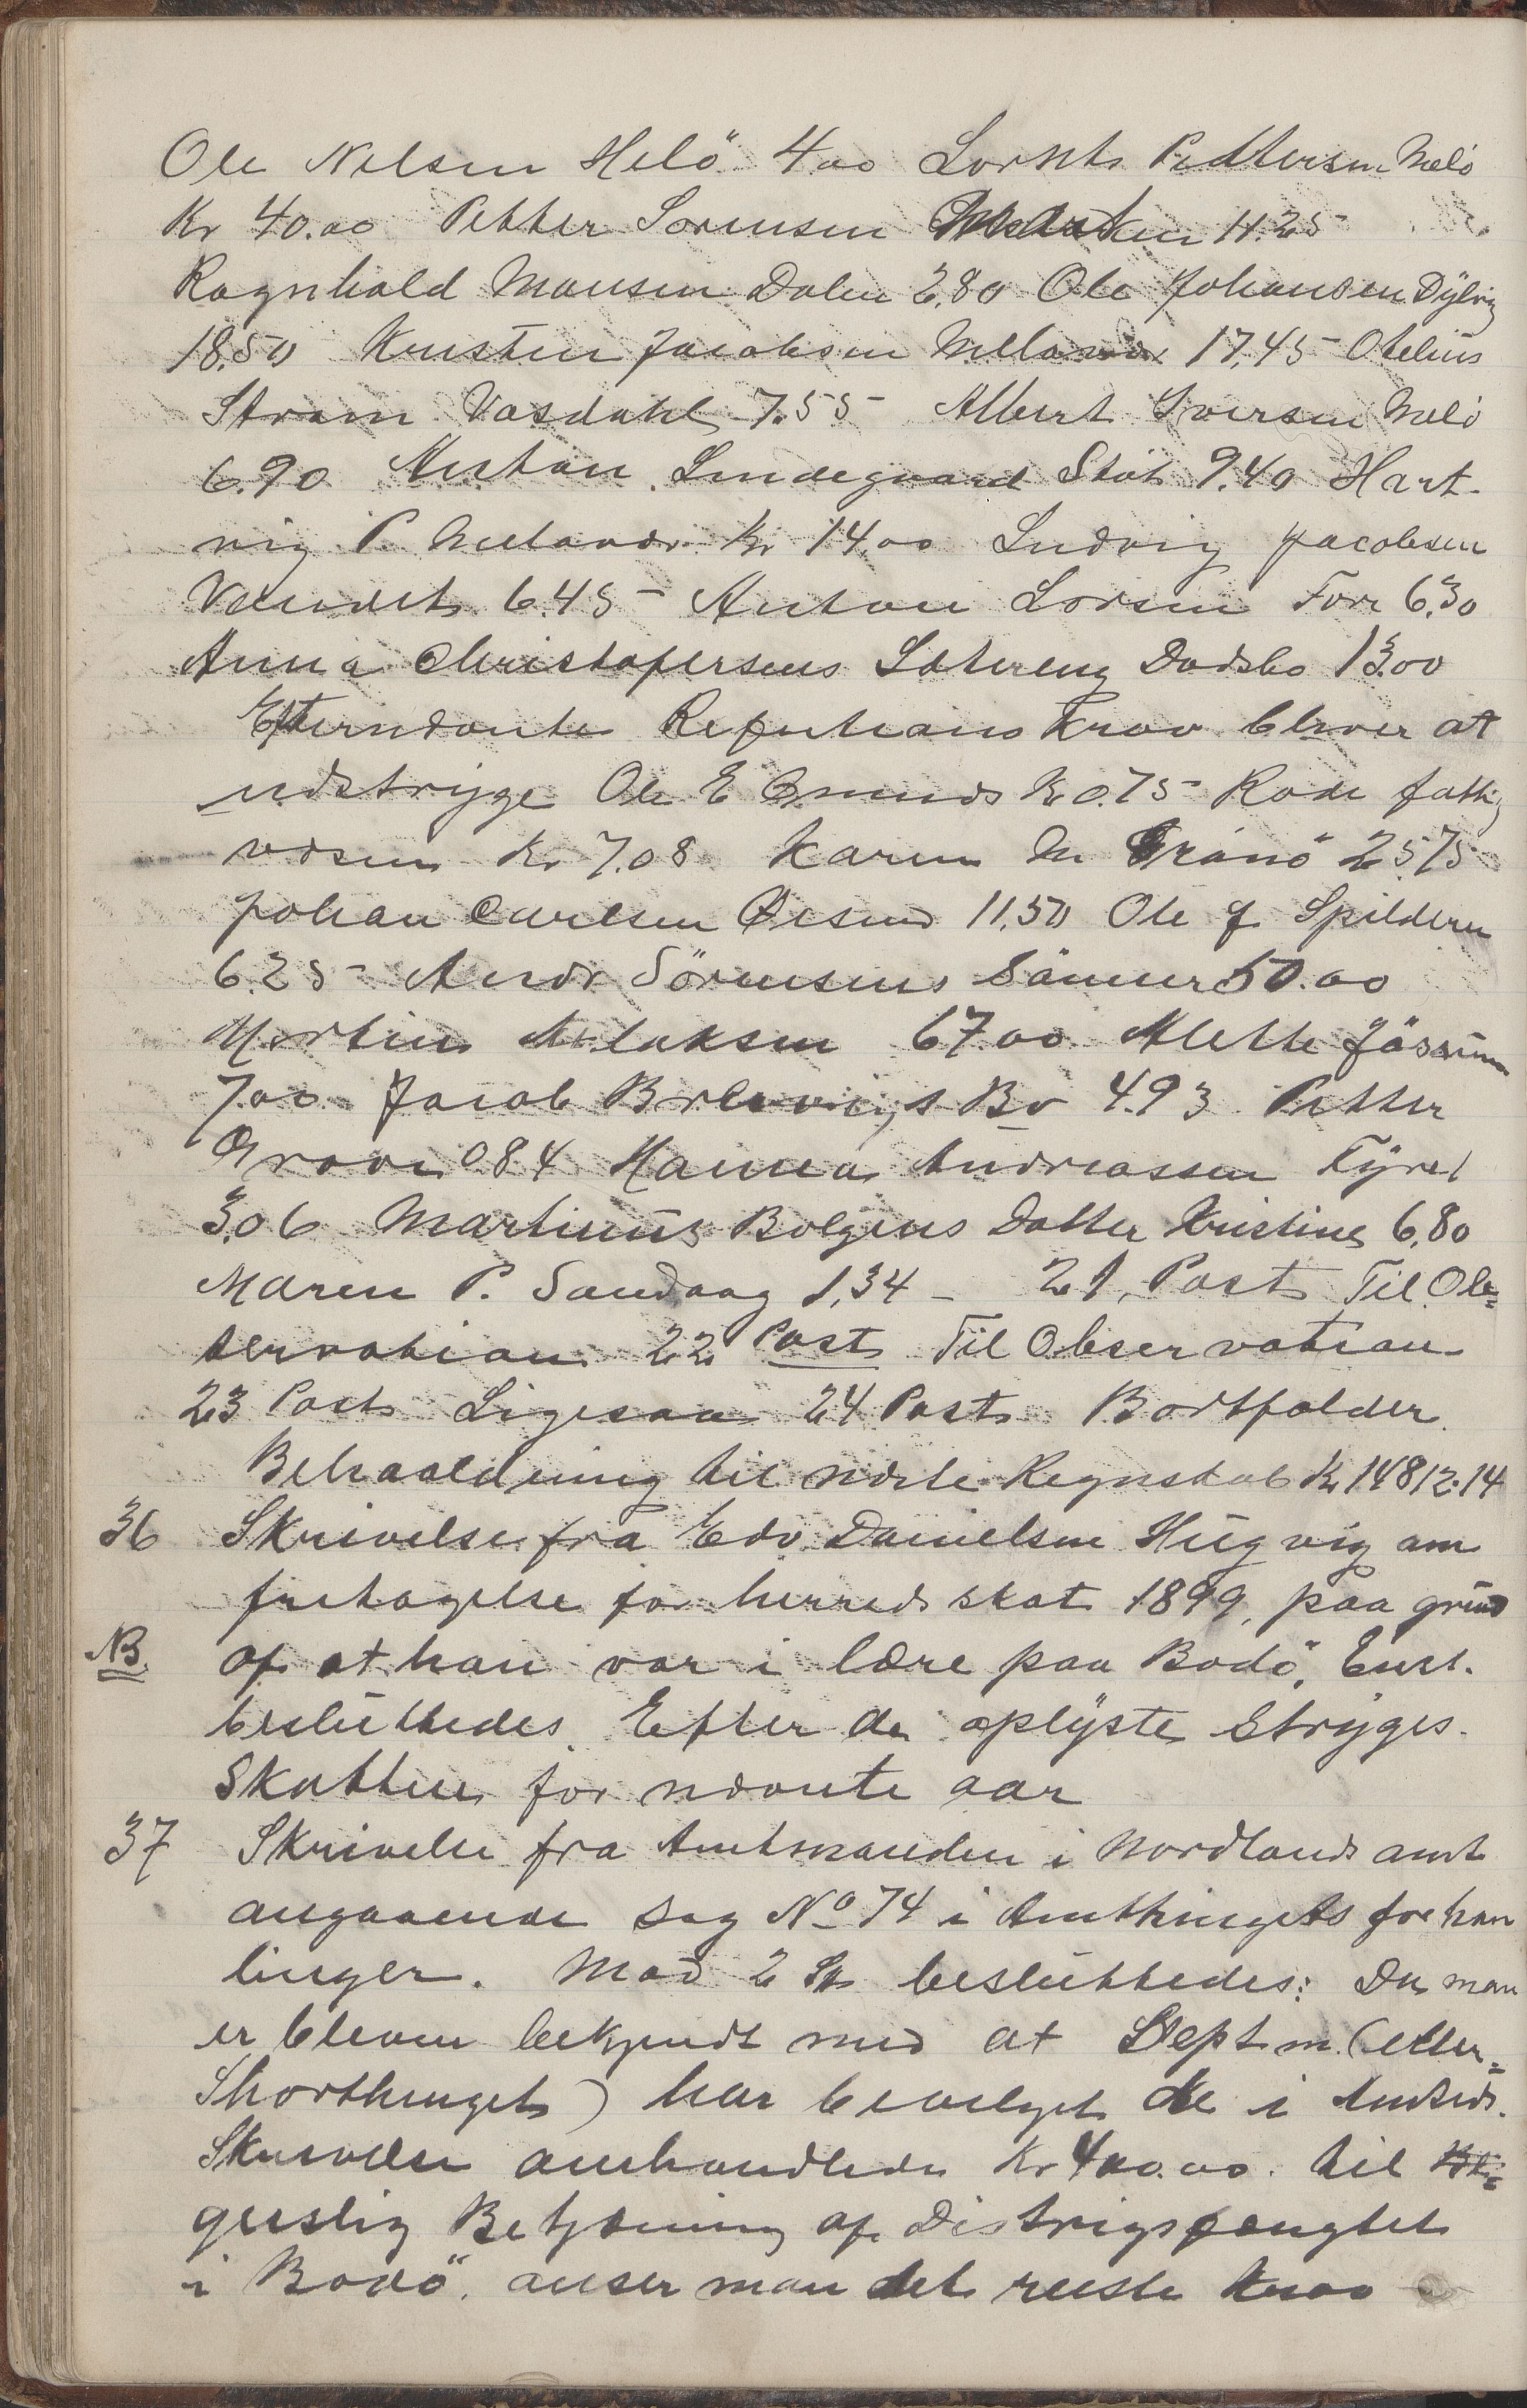 Ole Nilsen Helö 4.00 Lornts Pedtersen Melö
Kr 40.00 Petter Sörensen 11.25
Ragnhald Monsen Dalen 2,80 Ole Johansen Dylvig
18.50 Kristen Jacobsen Melandr 17,45 Otelius
Strøm Vasdahl 7.55 Albert Iversen Melö
6.90 Anton Lindegaard Støt 9.40 Hart-
vig P. Melandr Kr 14,00 Ludvig Jacobsen
Vændets 6.45 Anton Lorsen Forr 6.30
Anna Christofersens Sætereng Dødsbo 13.00
Efternævnte Repartians Krav bliver at
udstryge Ole E Osmunds Kr 0.75 Rødø fattig
væsen Kr 7.08 Karen M Grönö 25.75
Johan Carlsen Øesund 11,50 Ole J. Spilderen
6.25 Andr Sörensens Sönner 50.00
Martin Aslaksen 67.00 Mette Jössund
7.00 Jacob Breivigs Bo 4.93 Petter
Grove 0.84 Hanna Andreassen Fyret
3.06 Martinus Bolgens Datter Kristine 6,80
Maren P. Sandaag 1,34 - 21, Post Til Ob=
servation 22 Post Til Observation
23 Post Ligesaa 24 Post Bortfalder.
Behaaldning til næste Regnskab Kr 14812.14
36 Skrivelse fra Edv. Danielsen Hugvig om
fritagelse for herreds skat 1899, paa grund
NB. af at han var i lære paa Bodö. Enst.
besluttedes. Efter de oplyste Stryges.
Skatten for nævnte aar
37 Skrivelse fra Amtmanden i Nordlands amt
angaaende sag No 74 i Amthingets forhan
linger. Mod 2 St. besluttedes: Da man
er bleven bekjendt med at Dept m. (eller=
Storthinget) har bevilget de i Amtets.
Skrivelse omhandlede Kr 400.00. til
geistlig Betjening af Distrigsfængslet
i Bodö. anser man det reiste Krav